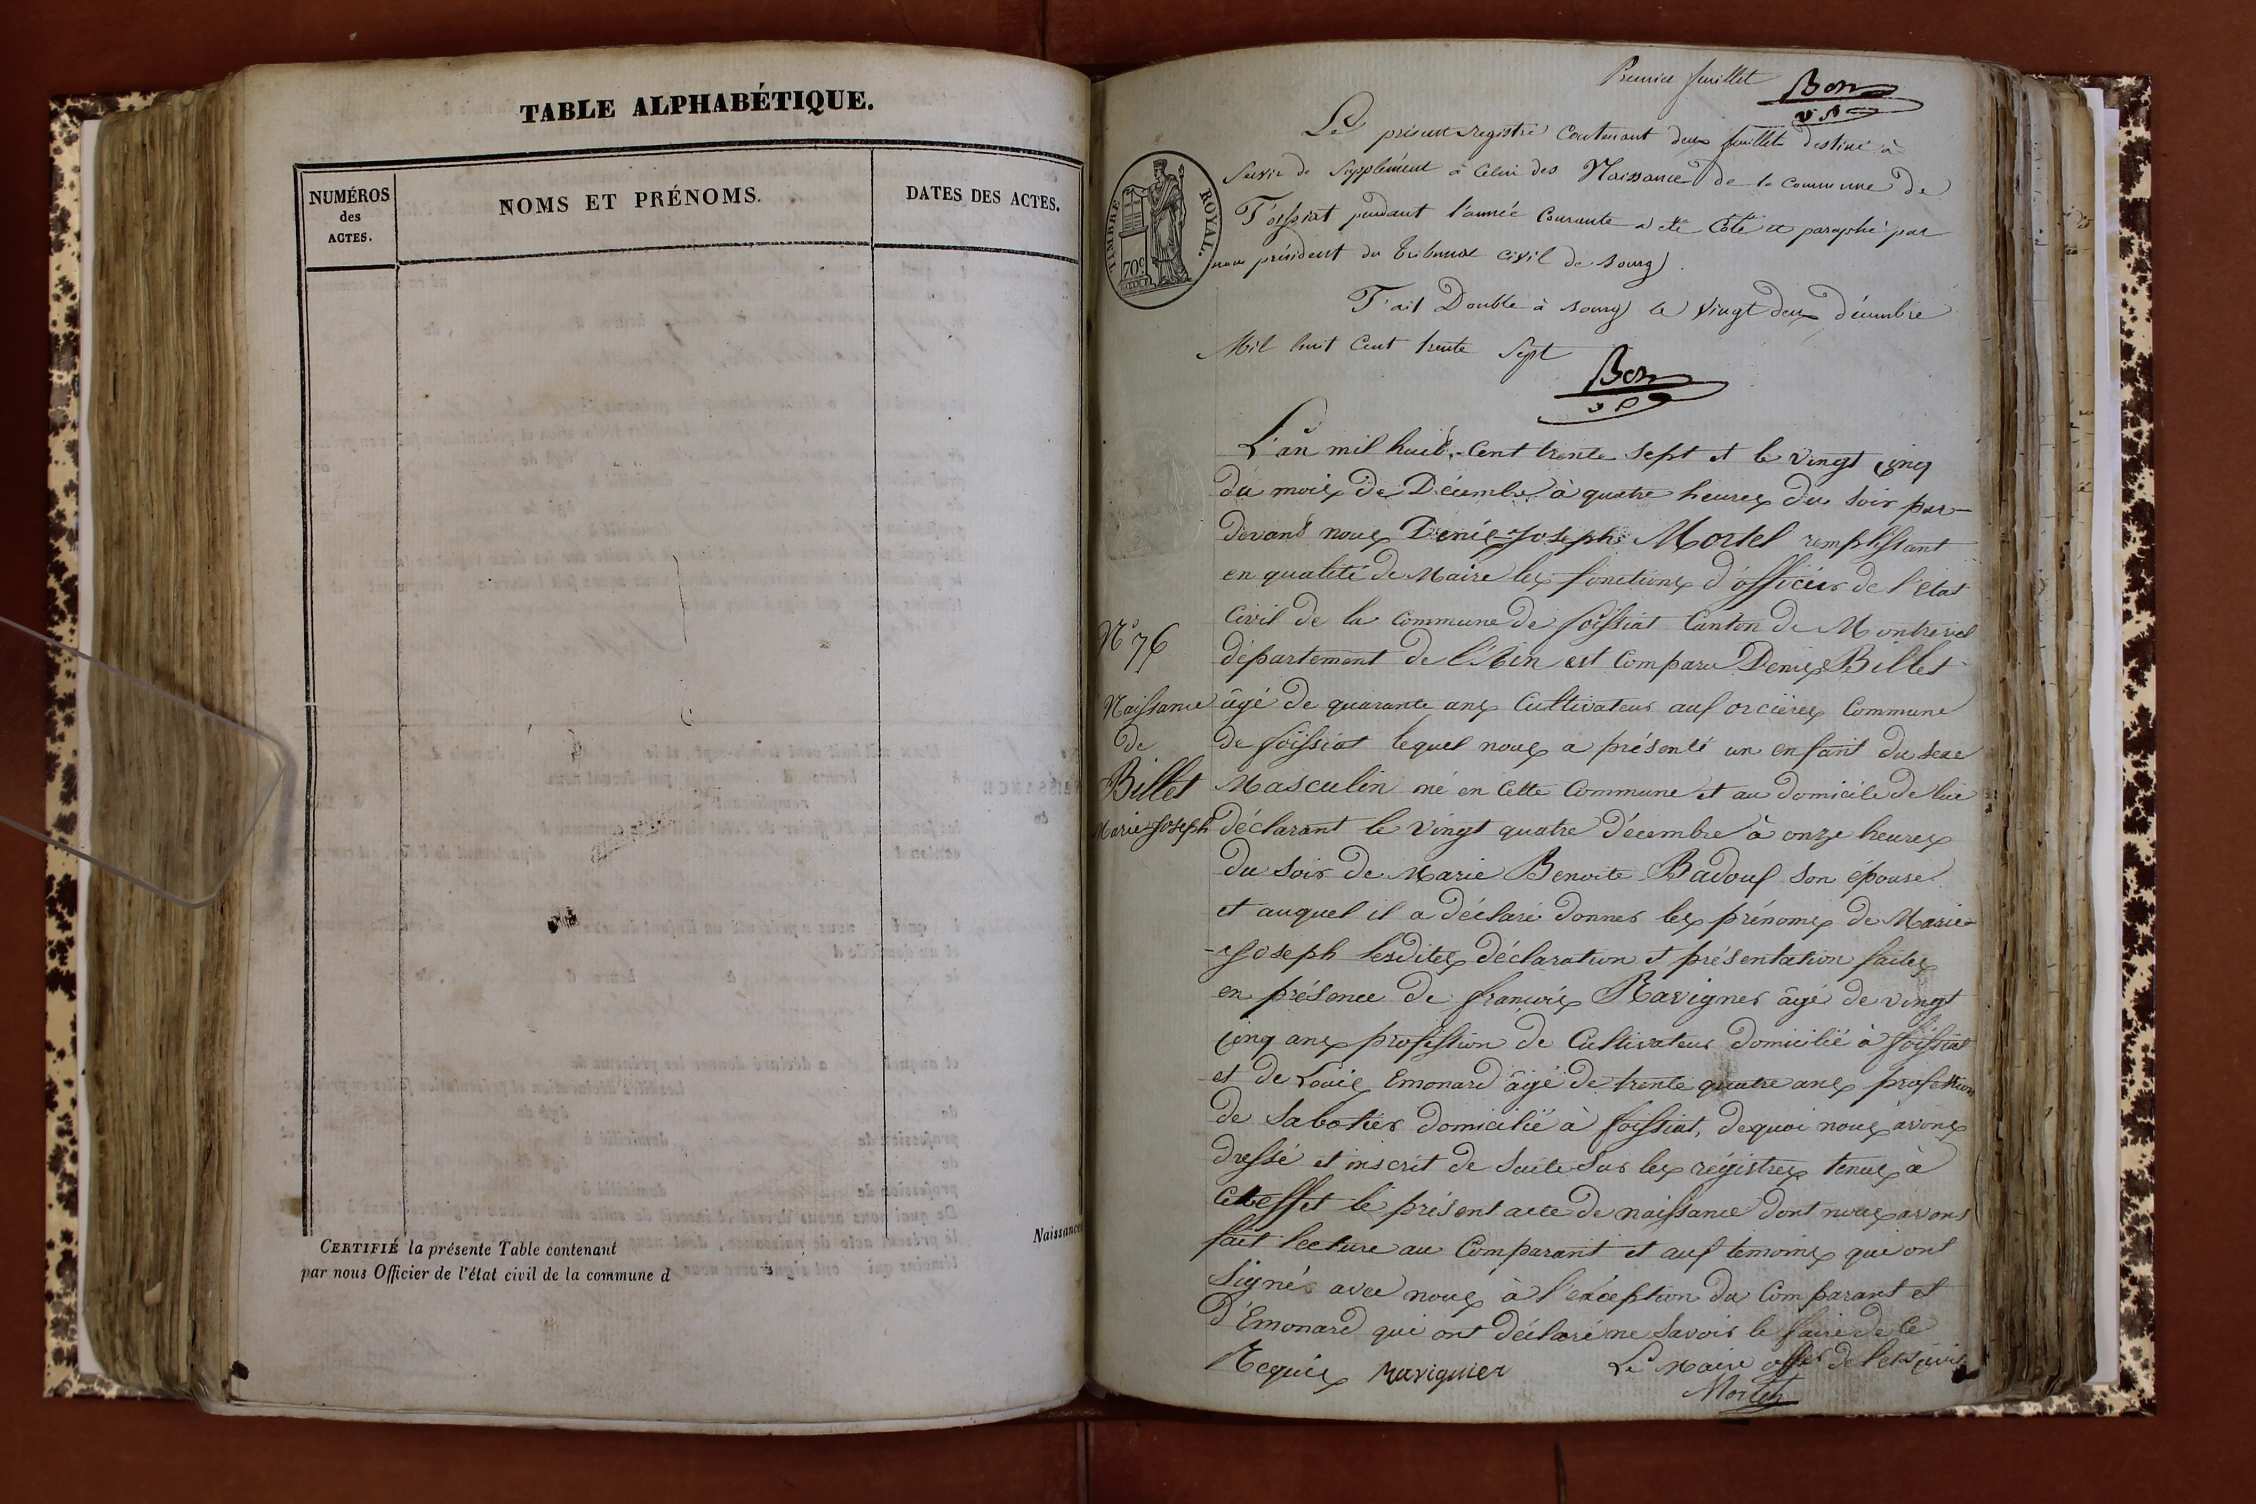 TABLE ALPHABÉTIQUE.
NUMÉROS
des
ACTES.
NOMS ET PRÉNOMS.
DATES DES ACTES.
CERTIFIÉ la présente Table contenant
par nous Officier de l'état civil de la commune d
Naissances
Premier feuillet
Bon
Le présent registre Contenant deux feuillets destiné à
servir de Supplément à Celui des Naissances de la Commune de
Foissiat pendant l'année Courante a été Côté et paraphé par
nous président du Tribunal Civil de Bourg.
Fait Double à Bourg le Vingt deux décembre
Mil huit Cent trente Sept
Bon
TIMBRE ROYAL.
70c
L'an mil huit-Cent trente sept et le vingt cinq
du mois de Décembre à quatre heures du soir par-
devant nous Denis-Joseph Mortel remplissant
en qualité de Maire les fonctions d'officier de l'état
Civil de la commune de foissiat Canton de Montrevel
département de l'Ain est Comparu Denis Billet
âgé de quarante ans Cultivateur aux orcières Commune
de foissiat lequel nous a présenté un enfant du sexe
Masculin né en Cette Commune et au domicile de lui
déclarant le Vingt quatre décembre à onze heures
du soir de Marie Benoite Badoux son épouse
et auquel il a déclaré donner les prénoms de Marie-
-Joseph lesdites déclaration et présentation faites
en présence de françois Ravignier âgé de vingt
Cinq ans profission de Cultivateur domicilié à foissiat
et de Louis Emonard âgé de trente quatre ans profession
de Sabotier domicilié à foissiat, dequoi nous avons
dressé et inscrit de suite sur les régistres tenus à
Cet effet le présent acte de naissance dont nous avons
fait lecture au Comparant et aux temoins qui ont
Signé avec nous à l'exception du Comparant et
d'Emonard qui ont déclaré ne savoir le faire de Ce
Requis Ravignier
Le Maire offer de l'etat civil
Mortel
N° 76
Naissance
de
Billet
Marie-Joseph